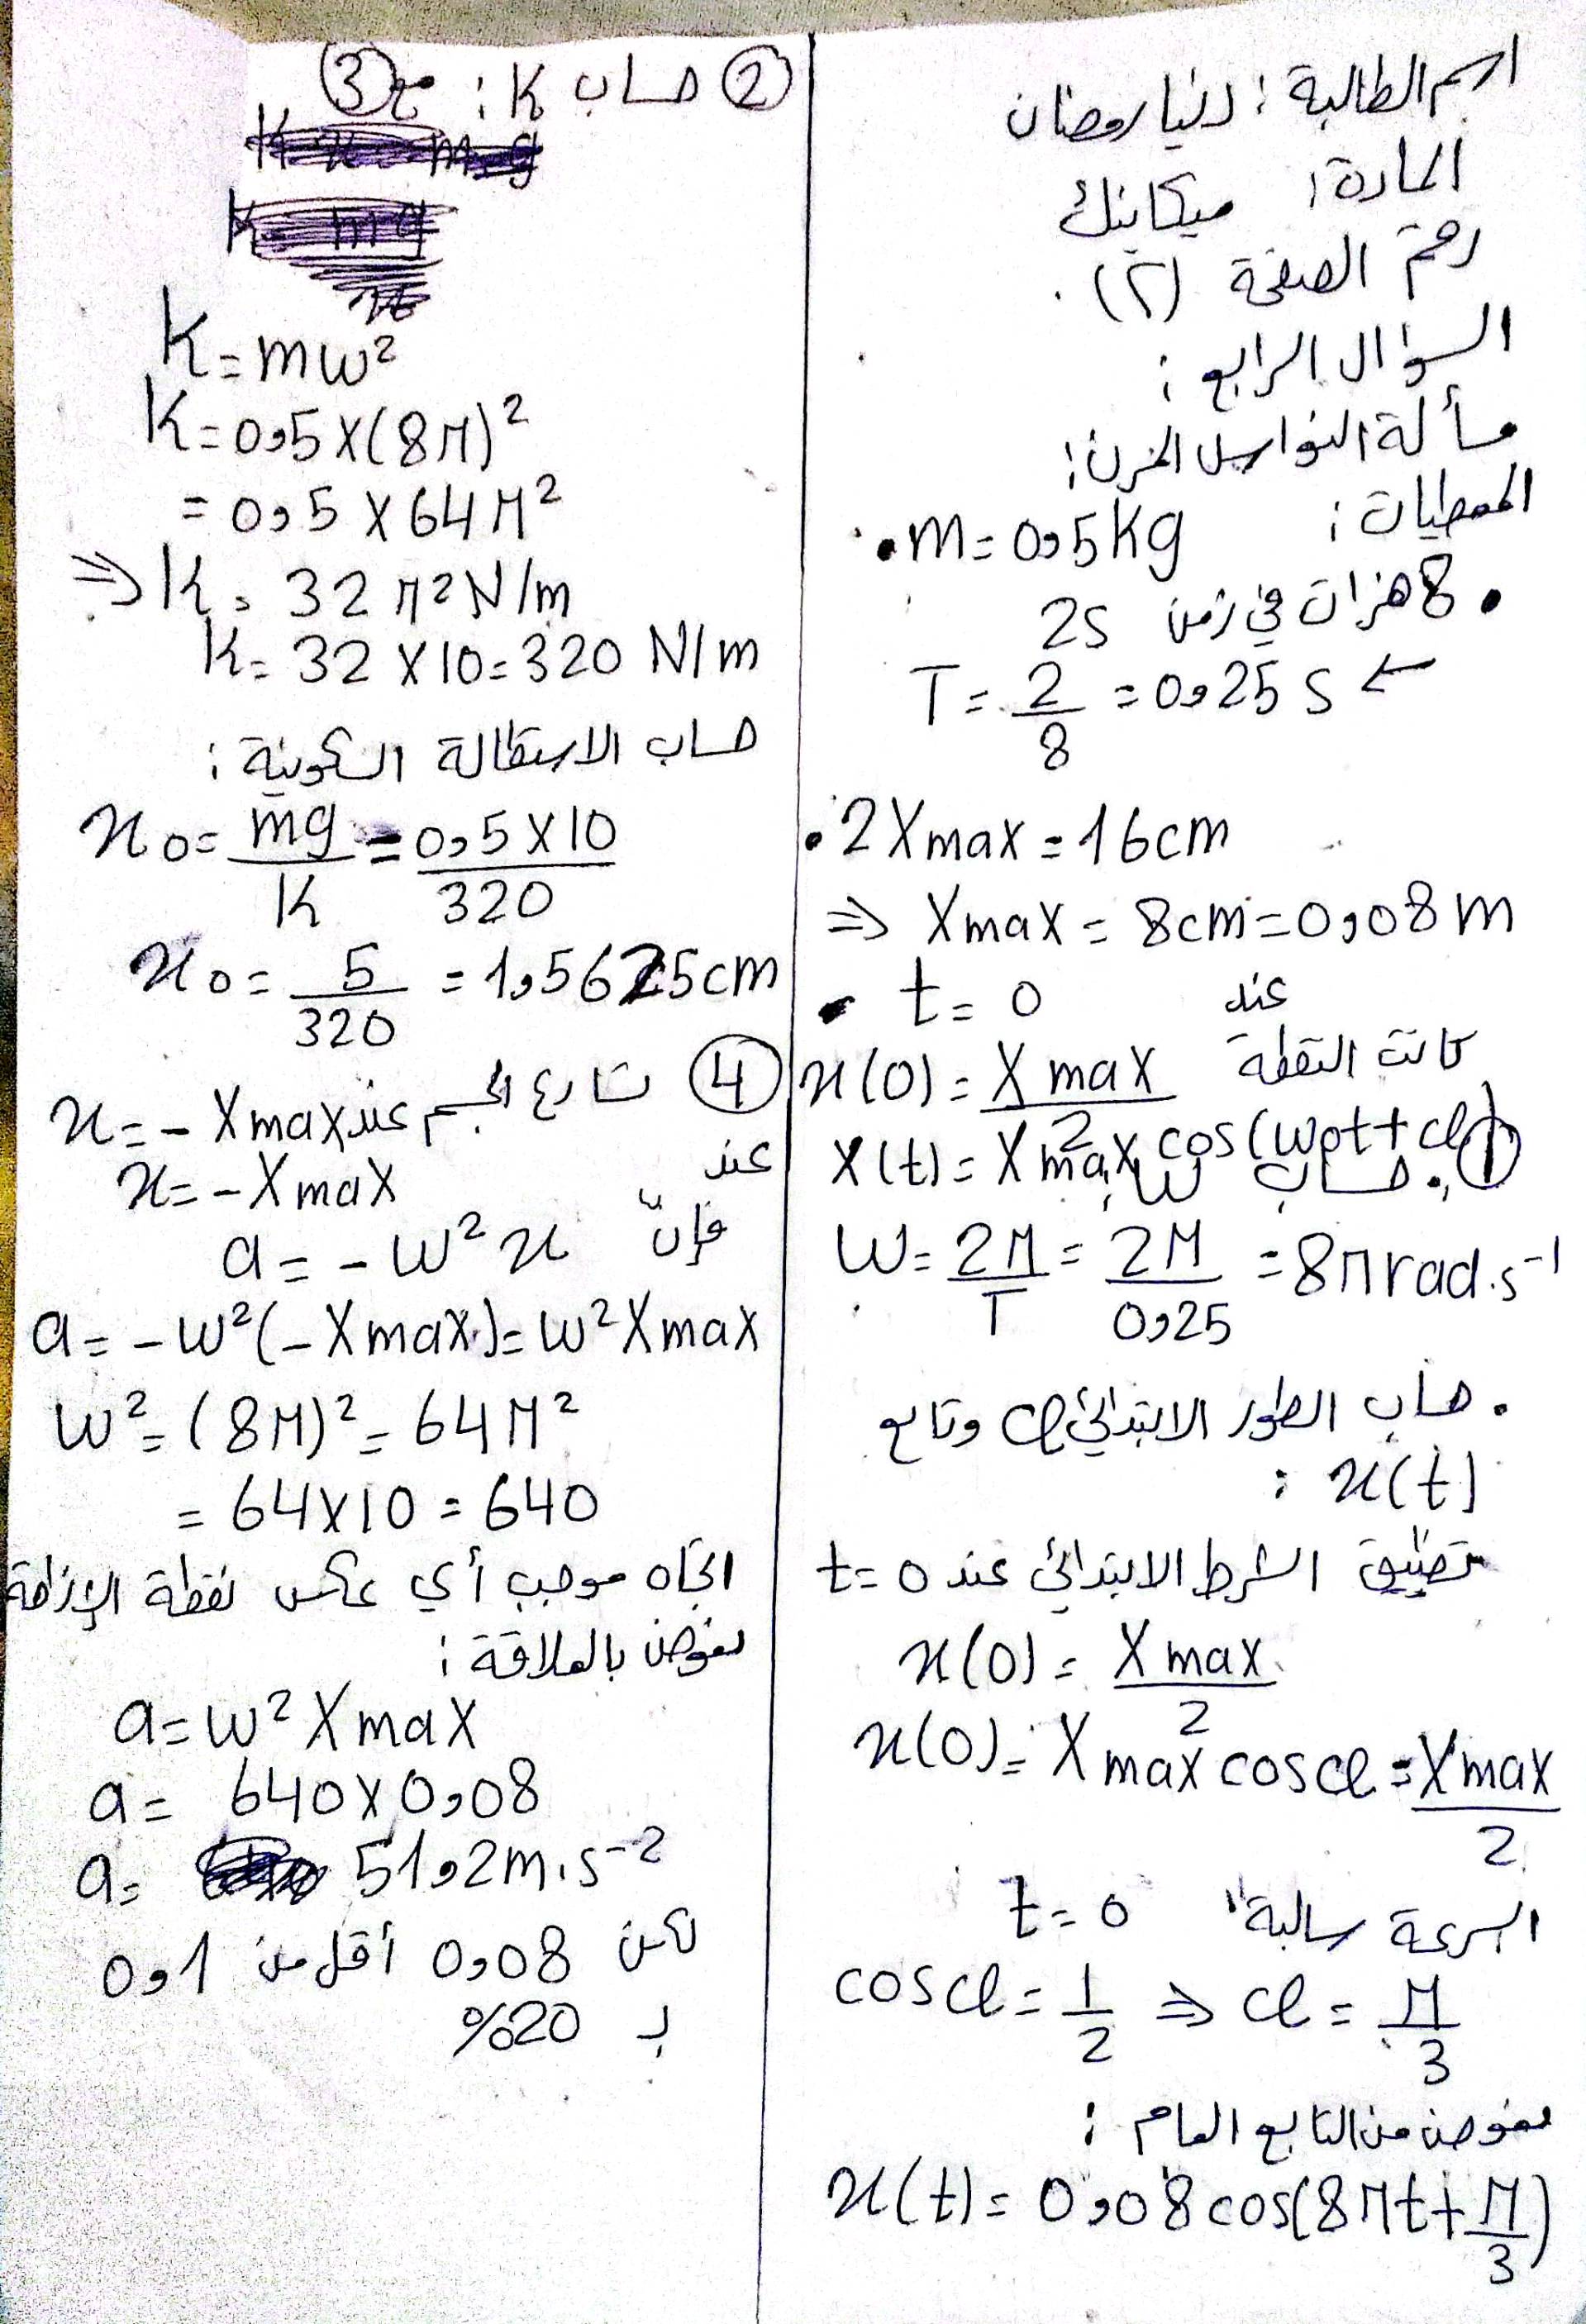 اسم الطالبة: دنيا رمضان
المادة: ميكانيك
رقم الصفحة (٢).
السؤال الرابع:
مسألة النواس المرن:
المعطيات:
• m = 0,5 Kg
• 8 هزات في زمن 2s
← T = 2/8 = 0,25 s
• 2 Xmax = 16 cm
⇒ Xmax = 8cm = 0,08 m
• عند t = 0
كانت النقطة x(0) = Xmax/2
x(t) = Xmax cos(w₀t + φ)
① • حساب w:
w = 2π/T = 2π/0,25 = 8π rad.s⁻¹
• حساب الطور الابتدائي φ وتابع
x(t) :
تطبيق الشرط الابتدائي عند t = 0
x(0) = Xmax/2
x(0) = Xmax cos φ = Xmax/2
السرعة سالبة" t = 0
cos φ = 1/2 ⇒ φ = π/3
نعوض من التابع العام :
x(t) = 0,08 cos(8πt + π/3)
② حساب K : مع ③
K = mw²
K = 0,5 x (8π)²
= 0,5 x 64π²
⇒ K = 32 π² N/m
K = 32 x 10 = 320 N/m
حساب الاستطالة السكونية :
x₀ = mg/K = 0,5 x 10/320
x₀ = 5/320 = 1,5625cm
④ تسارع الجسم عند x = - Xmax
عند x = - Xmax
فإنّ a = - w² x
a = - w²(- Xmax) = w² Xmax
w² = (8π)² = 64π²
= 64 x 10 = 640
اتجاه موجب أي عكس نقطة الإزاحة
نعوض بالعلاقة :
a = w² Xmax
a = 640 x 0,08
a = 51,2 m.s⁻²
لكن 0,08 أقل من 0,1
بـ 20%